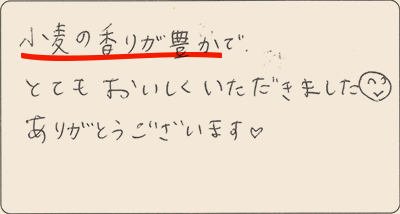 小麦の香りが豊かで、
とてもおいしくいただきました
ありがとうございます♡